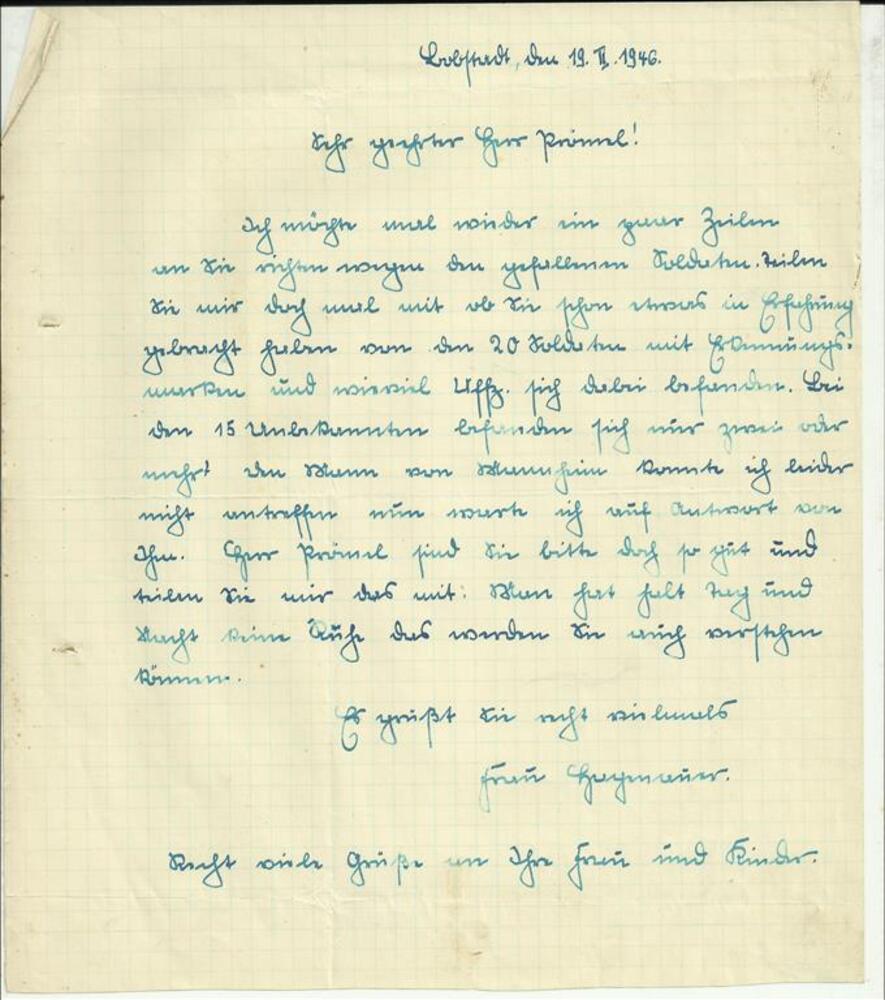 Bobstadt, den 19. II. 1946.
Sehr geehrter Herr Prömel!
Ich möchte mal wieder ein paar Zeilen
an Sie richten wegen den gefallenen Soldaten. Teilen
Sie mir doch mal mit ob Sie schon etwas in Erfahrung
gebracht haben von den 20 Soldaten mit Erkennungs-
marken und wieviel Uffz. sich dabei befanden. Bei
den 15 Unbekannten befanden sich nur zwei oder
mehr? den Mann von Mannheim konnte ich leider
nicht antreffen nun warte ich auf Antwort von
Ihm. Herr Prömel sind Sie bitte doch so gut und
teilen Sie mir das mit. Man hat halt Tag und
Nacht keine Ruhe das werden Sie auch verstehen
können.
Es grüßt Sie recht vielmals
Frau Hagenauer.
Recht viele Grüße an Ihre Frau und Kinder.